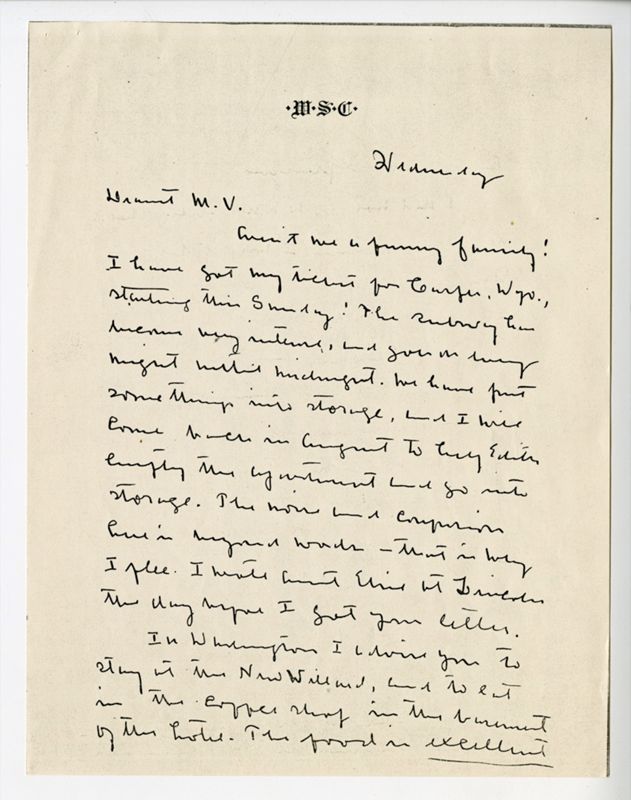 ·W·S·C·
Wednesday
Dearest M.V.
Aren't we a funny family!
I have got my ticket for Casper, Wyo.,
starting this Sunday! The subway has
become very intense, and goes on every
night until midnight. We have put
some things into storage, and I will
come back in August to help Edith
empty the apartment and go into
storage. The noise and confusion
here is beyond words – that is why
I flee. I wrote Aunt Elsie at Lincoln
the day before I got your letter.
In Washington I advise you to
stay at the New Willard, and to eat
in the coffee shop in the basement
of the hotel. The food is excellent